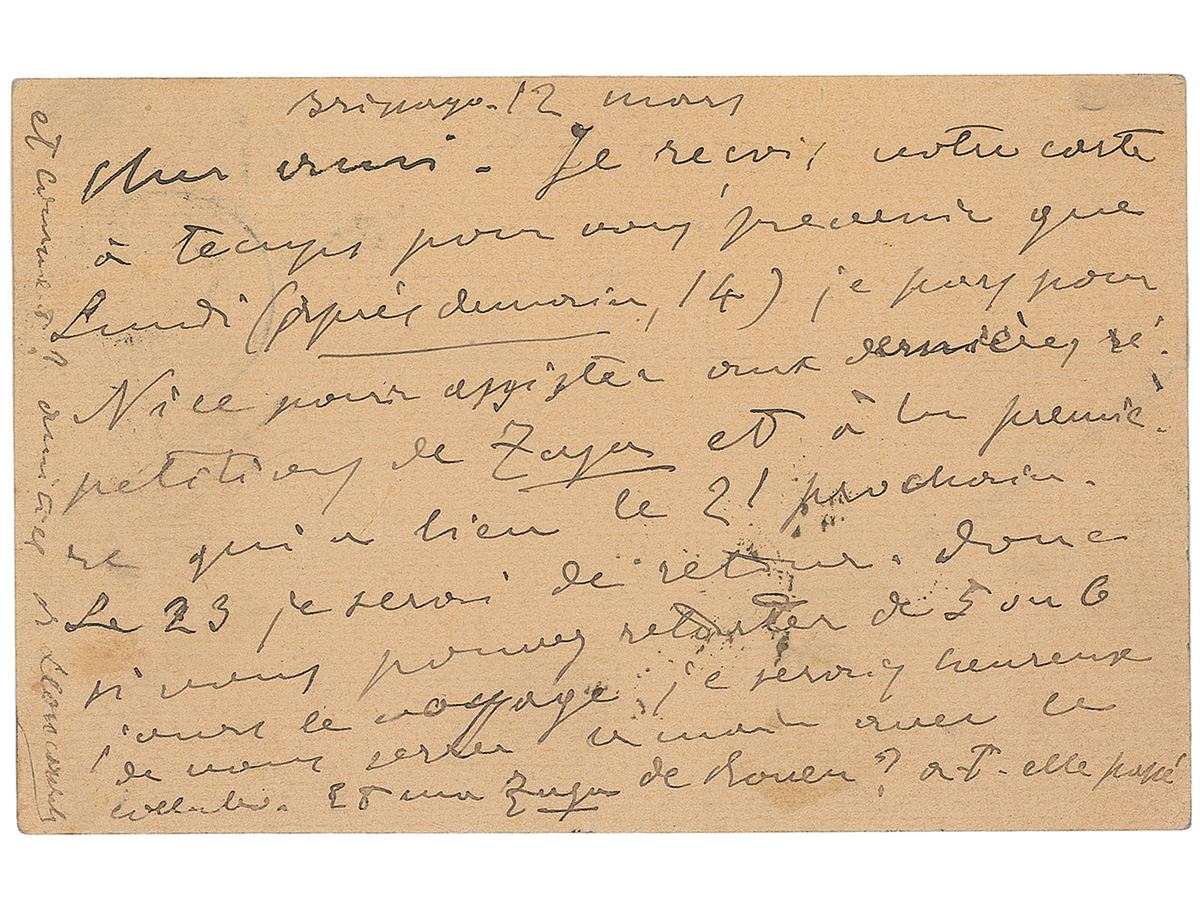 Brissago. 12 mars
Cher ami. Je reçois votre carte
à temps pour vous prévenir que
Lundi (après demain, 14) je pars pour
Nice pour assister aux dernières ré-
petitions de Zaza et à la premiè-
re qui a lieu le 21 prochain.
Le 23 je serai de retour. Donc
si vous pouvez retarder de 5 ou 6
jours le voyage, je serais heureux
de vous serrer la main avec le
collabo. Et ma Zaza de Rouen? a-t-elle passé
et comment? amitiés de Leoncavallo